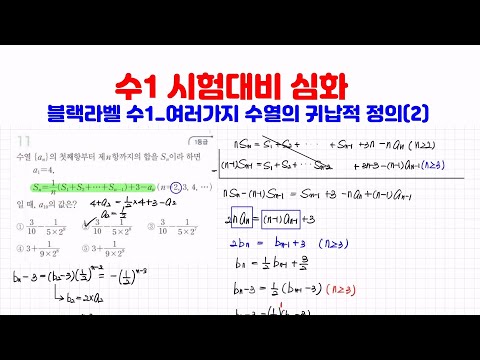 수1 시험대비 심화
블랙라벨 수1_여러가지 수열의 귀납적 정의(2)
11
1등급
수열 {aₙ}의 첫째항부터 제n항까지의 합을 Sₙ이라 하면
a₁=4,
Sₙ=1/n(S₁+S₂+⋯+Sₙ₋₁)+3-aₙ (n=2, 3, 4, ⋯)
일 때, a₁₀의 값은?
4+a₂=1/2×4+3-a₂
a₂=1/2
① 3/10 - 1/(5×2⁸)
② 3/10
③ 3/10 + 1/(5×2⁸)
④ 3+1/(9×2⁸)
bₙ-3=(b₂-3)(1/2)ⁿ⁻²=-(1/2)ⁿ⁻³
b₂=2×a₂
nSₙ=S₁+S₂+⋯+Sₙ₋₁+3n-naₙ (n≥2)
(n-1)Sₙ₋₁=S₁+S₂+⋯ +3n-3-(n-1)aₙ₋₁(n≥3)
nSₙ-(n-1)Sₙ₋₁=Sₙ₋₁+3-naₙ+(n-1)aₙ₋₁
2naₙ=(n-1)aₙ₋₁+3
2bₙ=bₙ₋₁+3 (n≥3)
bₙ=1/2bₙ₋₁+3/2
bₙ-3=1/2(bₙ₋₁-3)(n≥3)